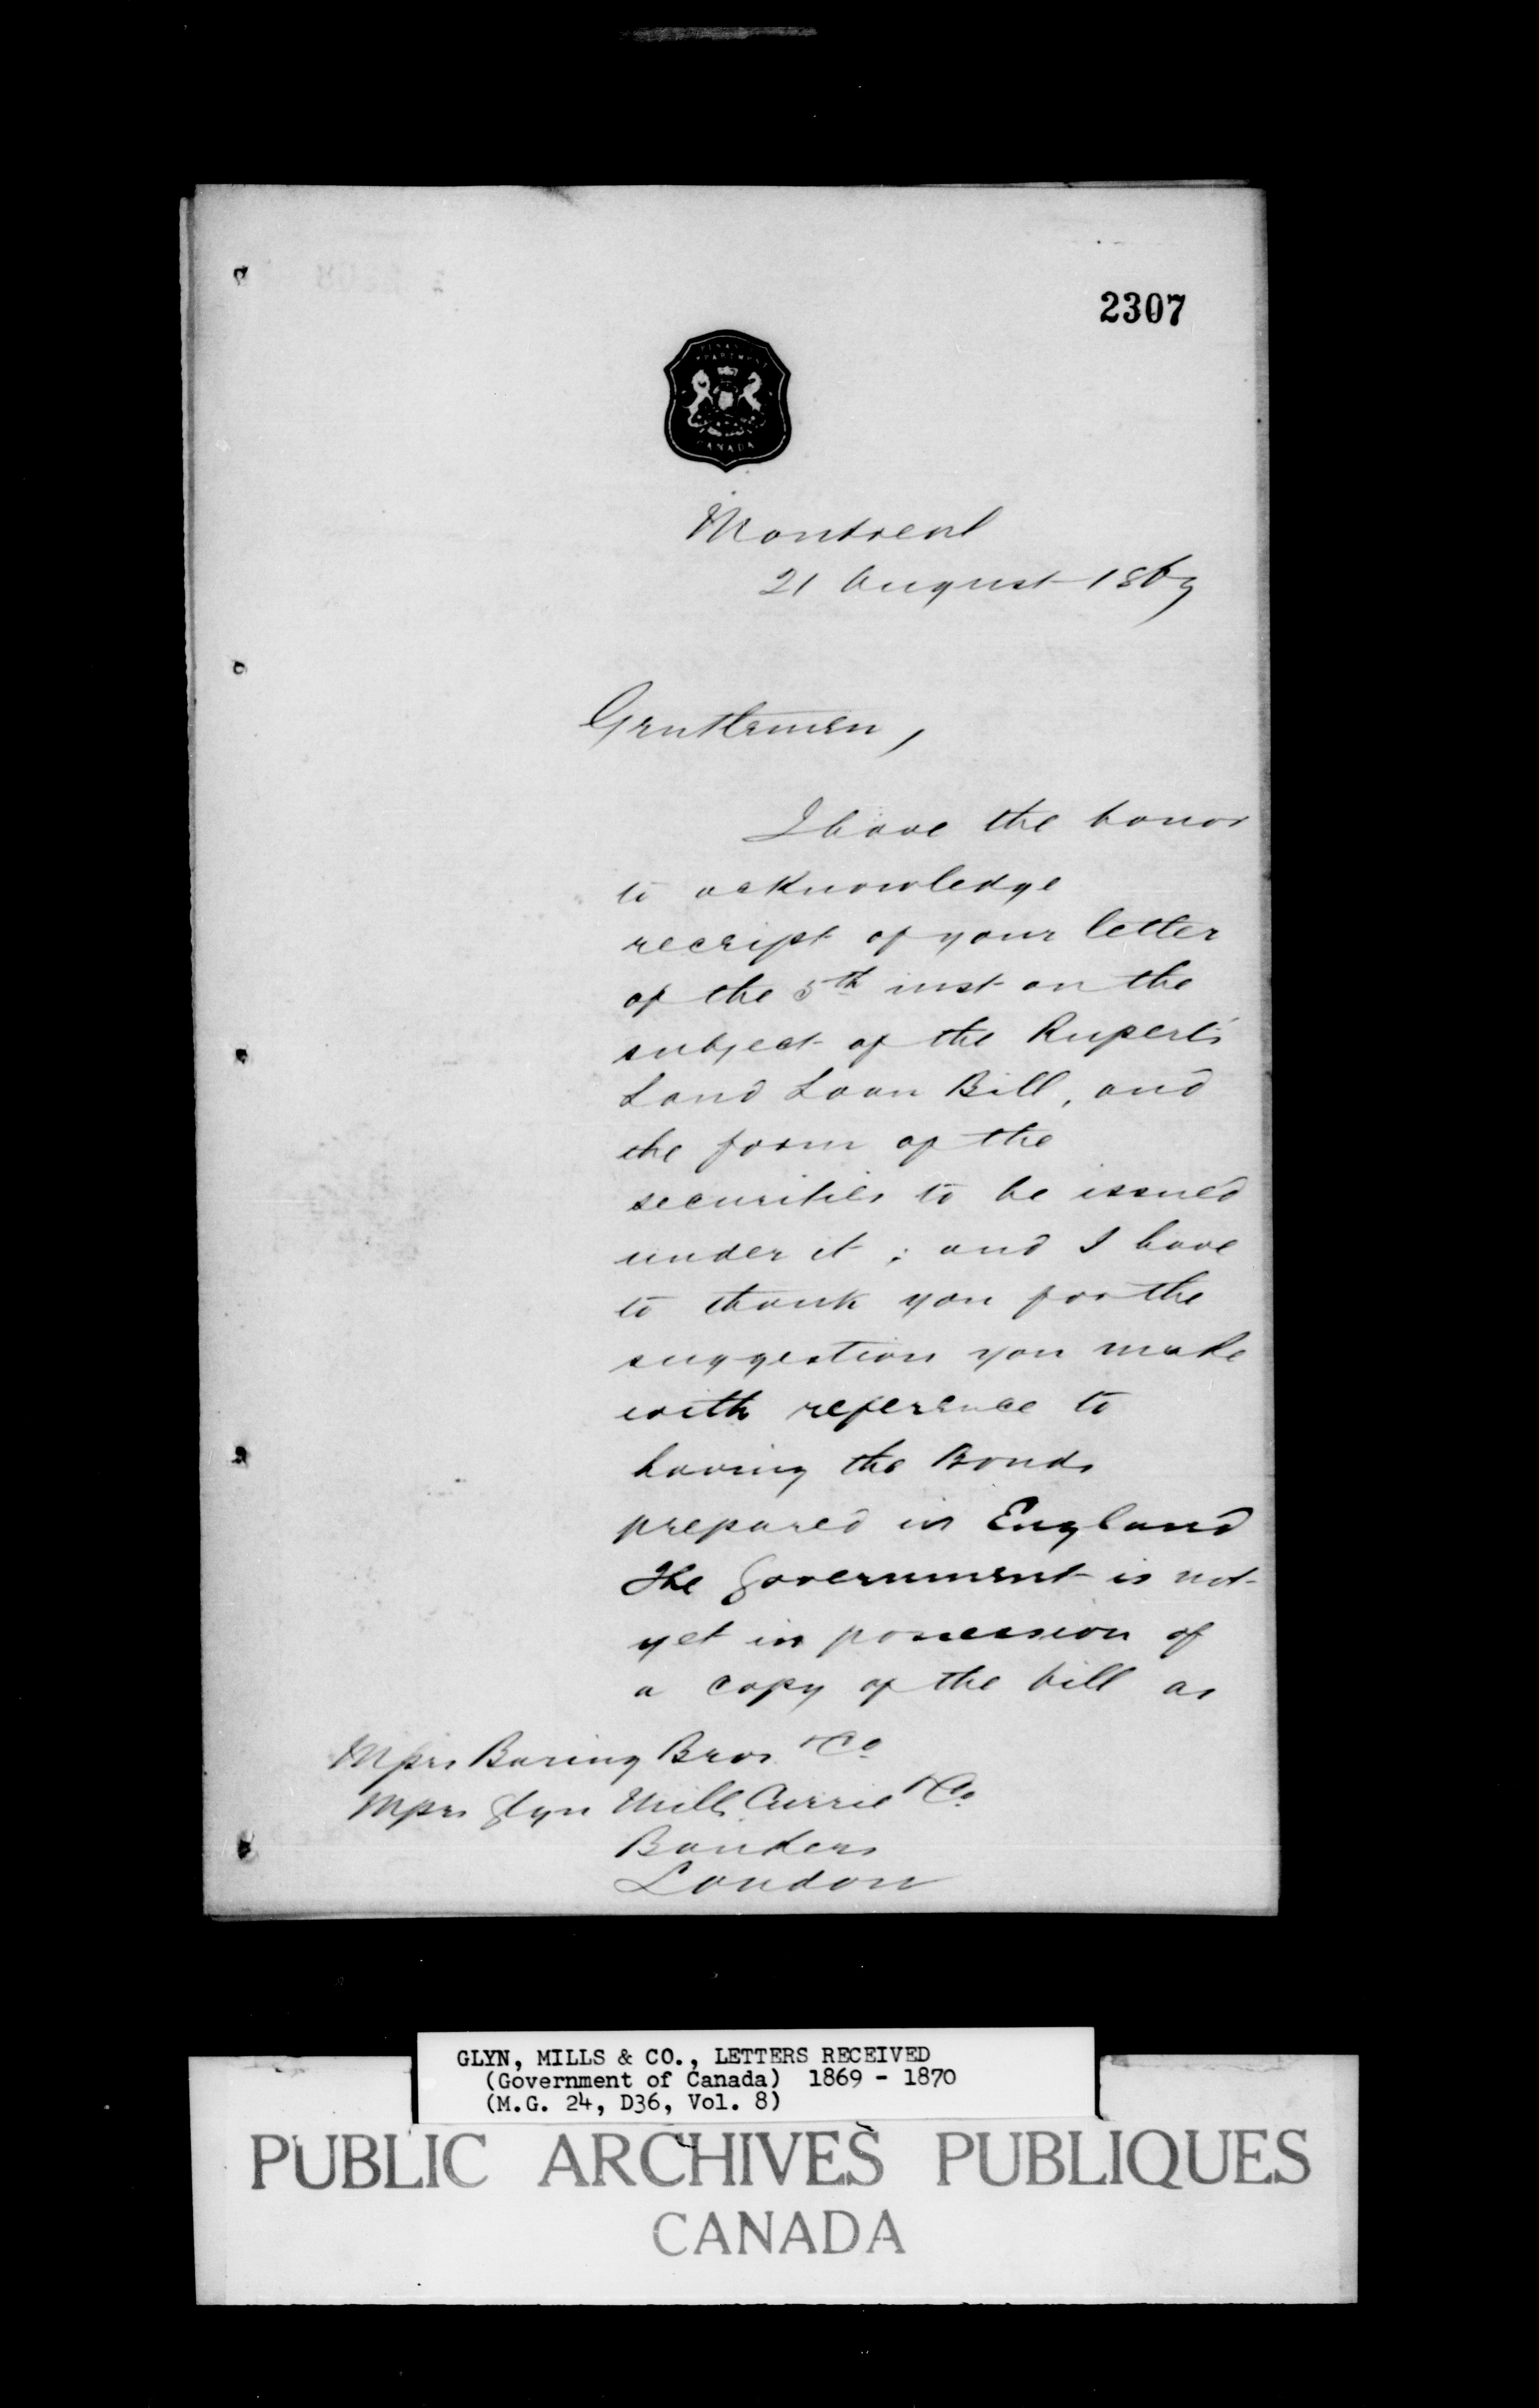 2307
CANADA
Montreal
21 August 1869
Gentlemen,
I have the honor
to acknowledge
receipt of your letter
of the 5th inst on the
subject of the Rupert's
Land Loan Bill, and
the form of the
securities to be issued
under it; and I have
to thank you for the
suggestion you make
with reference to
having the Bonds
prepared in England
The Government is not
yet in possession of
a copy of the bill as
Messrs Baring Bros & Co
Messrs Glyn Mills Currie & Co
Bankers
London
GLYN, MILLS & CO., LETTERS RECEIVED
(Government of Canada) 1869 - 1870
(M.G. 24, D36, Vol. 8)
PUBLIC ARCHIVES PUBLIQUES
CANADA